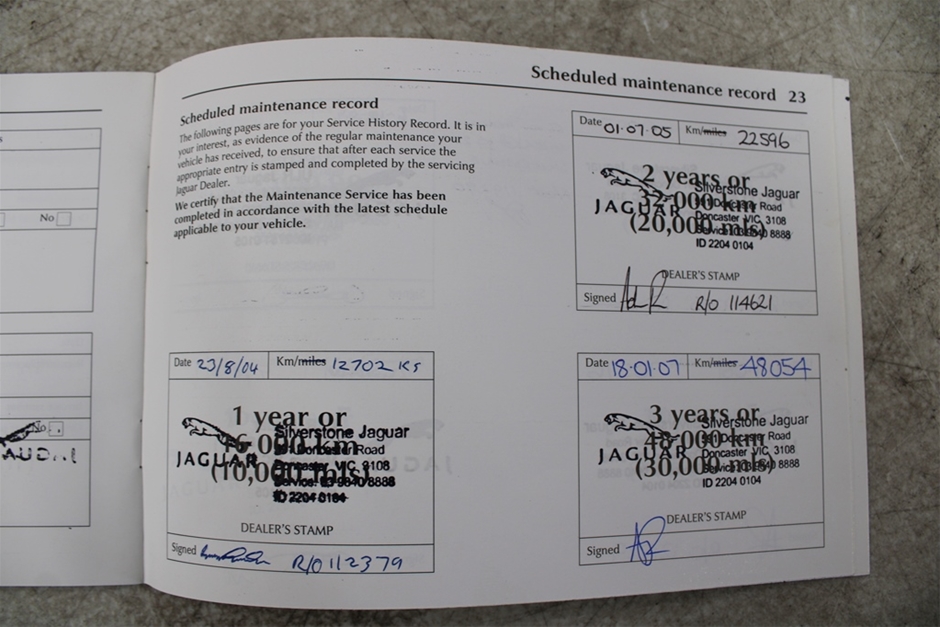 Scheduled maintenance record 23
Scheduled maintenance record
The following pages are for your Service History Record. It is in
your interest, as evidence of the regular maintenance your
vehicle has received, to ensure that after each service the
appropriate entry is stamped and completed by the servicing
Jaguar Dealer.
We certify that the Maintenance Service has been
completed in accordance with the latest schedule
applicable to your vehicle.
No
No
Date 23/8/04 Km/miles 12702 KS
1 year or
Silverstone Jaguar
000 km
Doncaster Road
JAGUAR
Doncaster VIC, 3108
(10,000 mls)
Service: 03 9840 8888
ID 2204 0104
DEALER'S STAMP
Signed R/O 112379
Date 01·07·05 Km/miles 22596
2 years or
Silverstone Jaguar
32,000 km
Doncaster Road
JAGUAR
Doncaster VIC, 3108
(20,000 mls)
Service: 03 9840 8888
ID 2204 0104
DEALER'S STAMP
Signed R/O 114621
Date 18·01·07 Km/miles 48054
3 years or
Silverstone Jaguar
48,000 km
Doncaster Road
JAGUAR
Doncaster VIC, 3108
(30,000 mls)
Service: 03 9840 8888
ID 2204 0104
DEALER'S STAMP
Signed